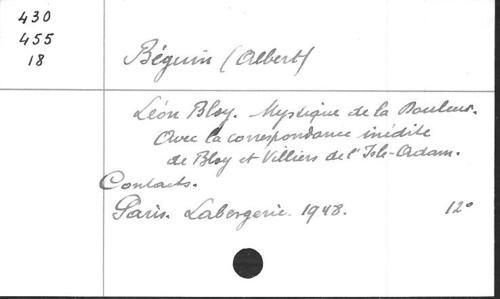 430
455
18
Béguin (Albert)
Léon Bloy. Mystique de la Douleur.
Avec la correspondance inédite
de Bloy et Villiers de l'Isle-Adam.
Contacts.
Paris. Labergerie. 1948. 12°